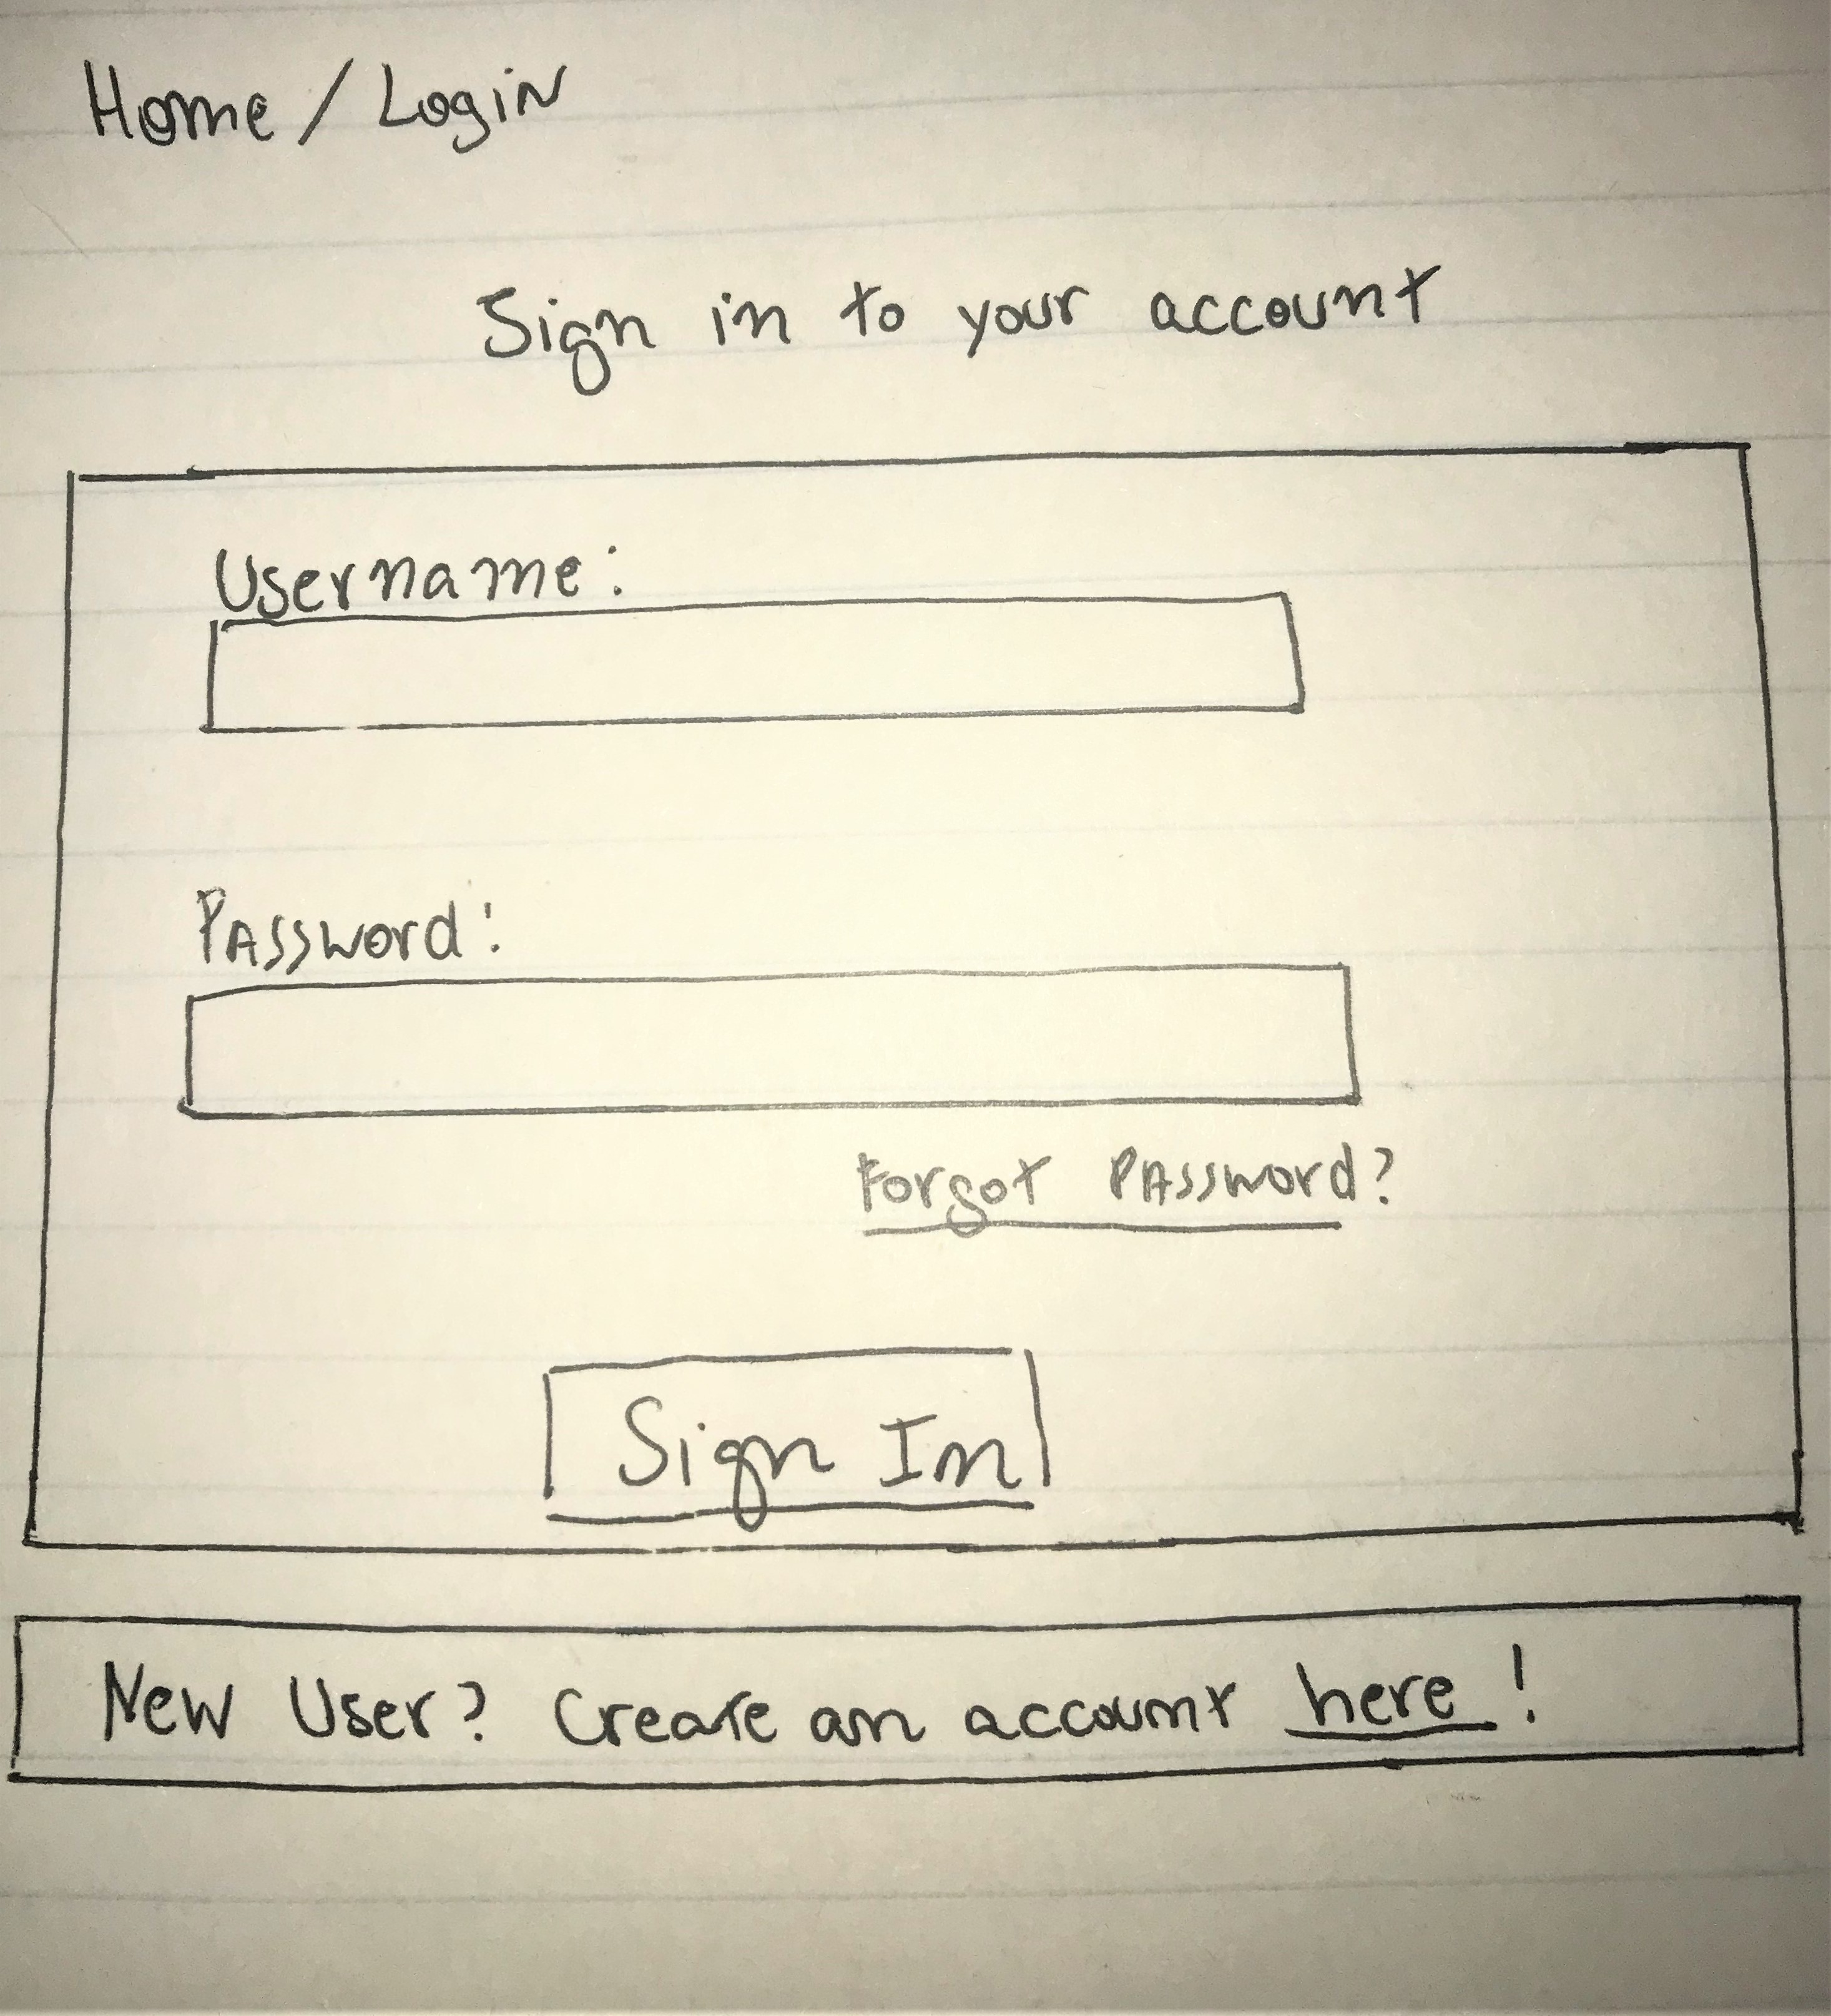 Home / Login
Sign in to your account
Username:
Password:
Forgot Password?
Sign In
New User? Create an account here!